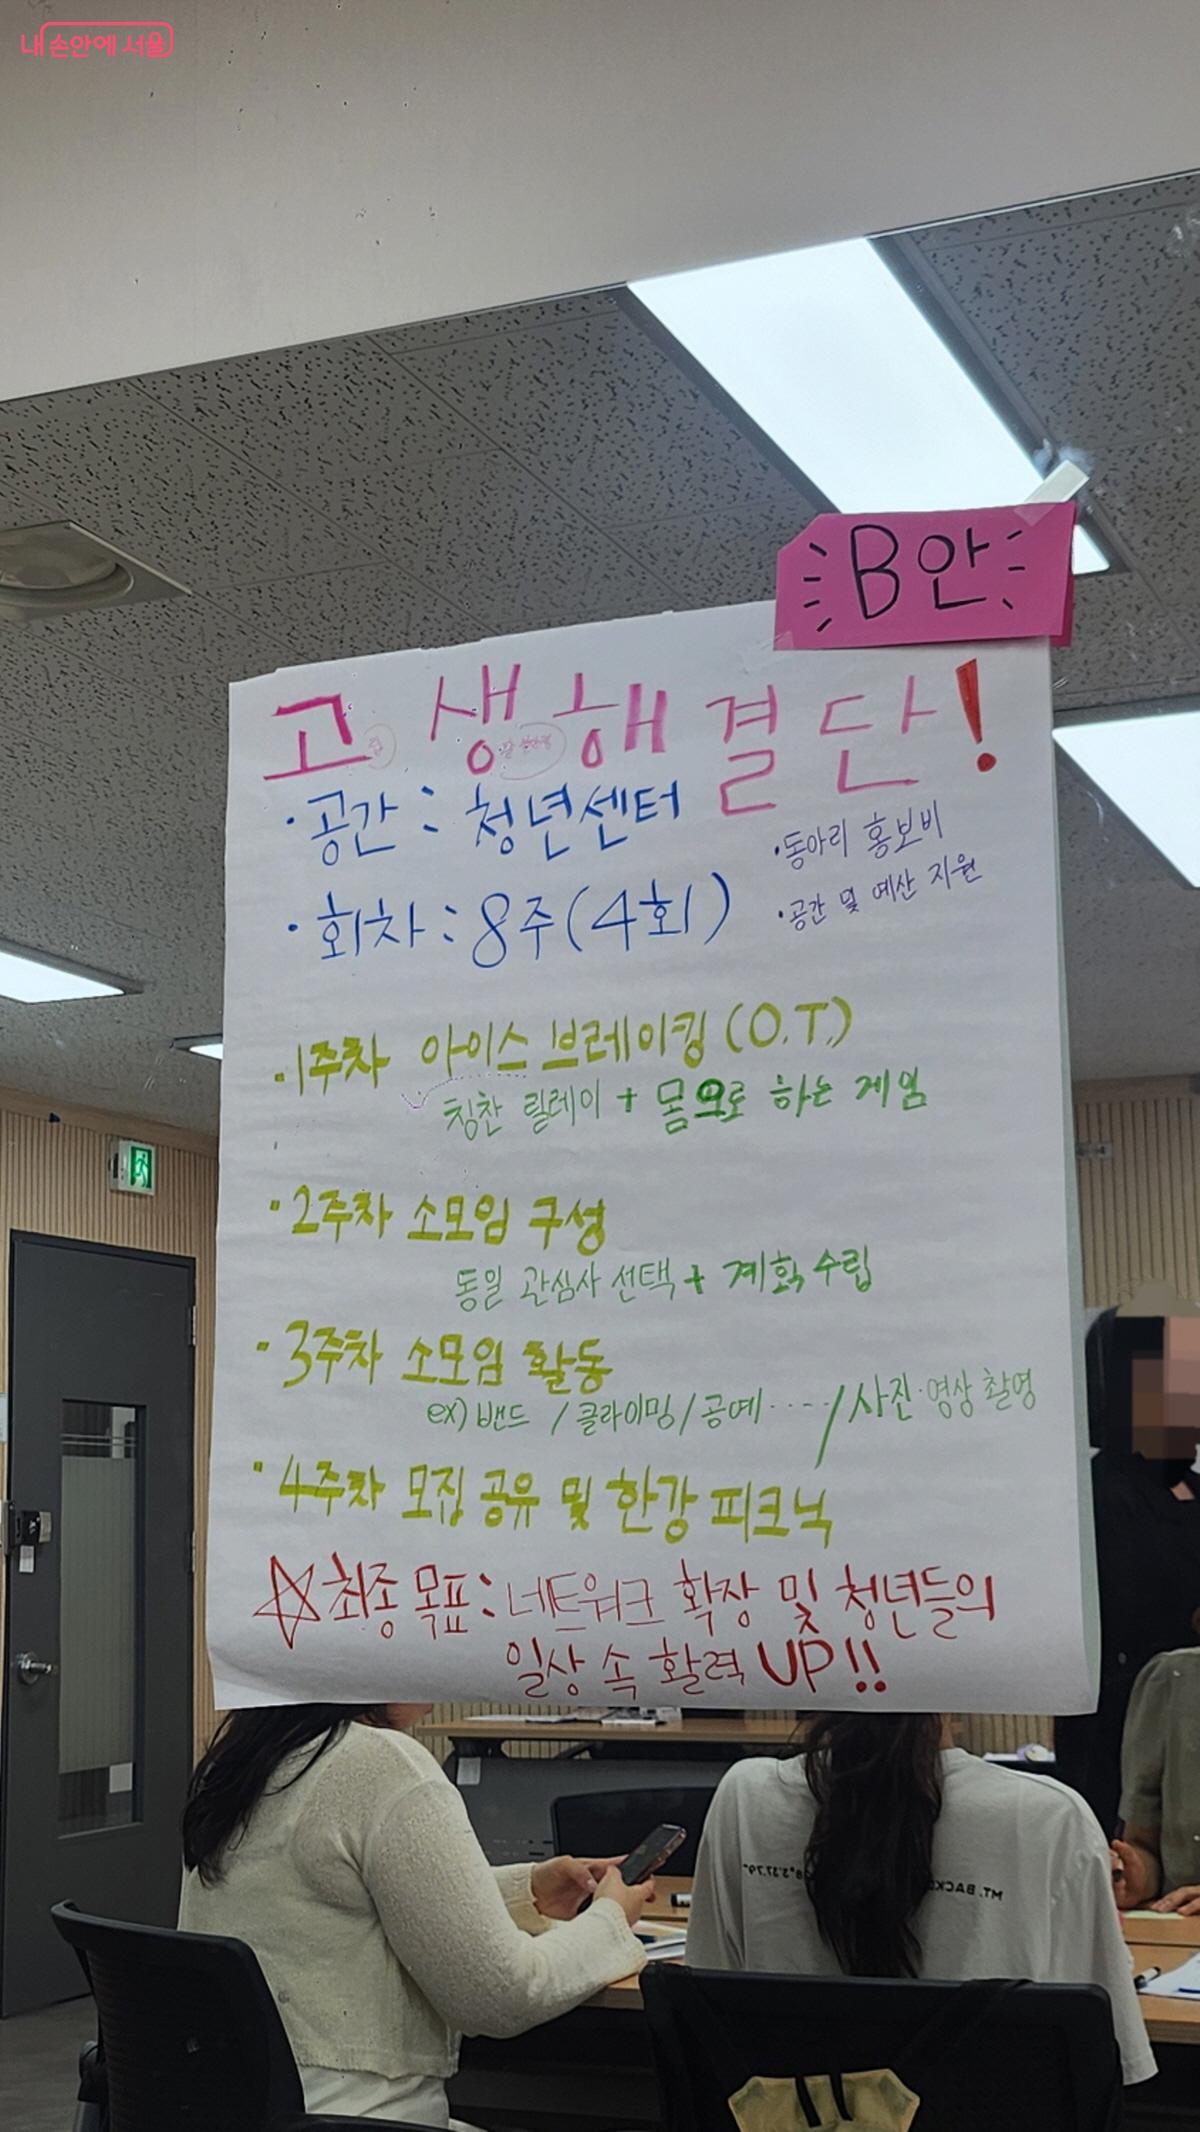 내 손안에 서울
B안
고생해결단!
·공간 : 청년센터
·동아리 홍보비
·회차 : 8주(4회)
·공간 및 예산 지원
·1주차 아이스 브레이킹 (O.T.)
칭찬 릴레이 + 몸으로 하는 게임
·2주차 소모임 구성
동일 관심사 선택 + 계획 수립
·3주차 소모임 활동
ex) 밴드 / 클라이밍 / 공예 ···· / 사진·영상 촬영
·4주차 모집 공유 및 한강 피크닉
☆최종 목표 : 네트워크 확장 및 청년들의
일상 속 활력 UP!!
MT. BACK